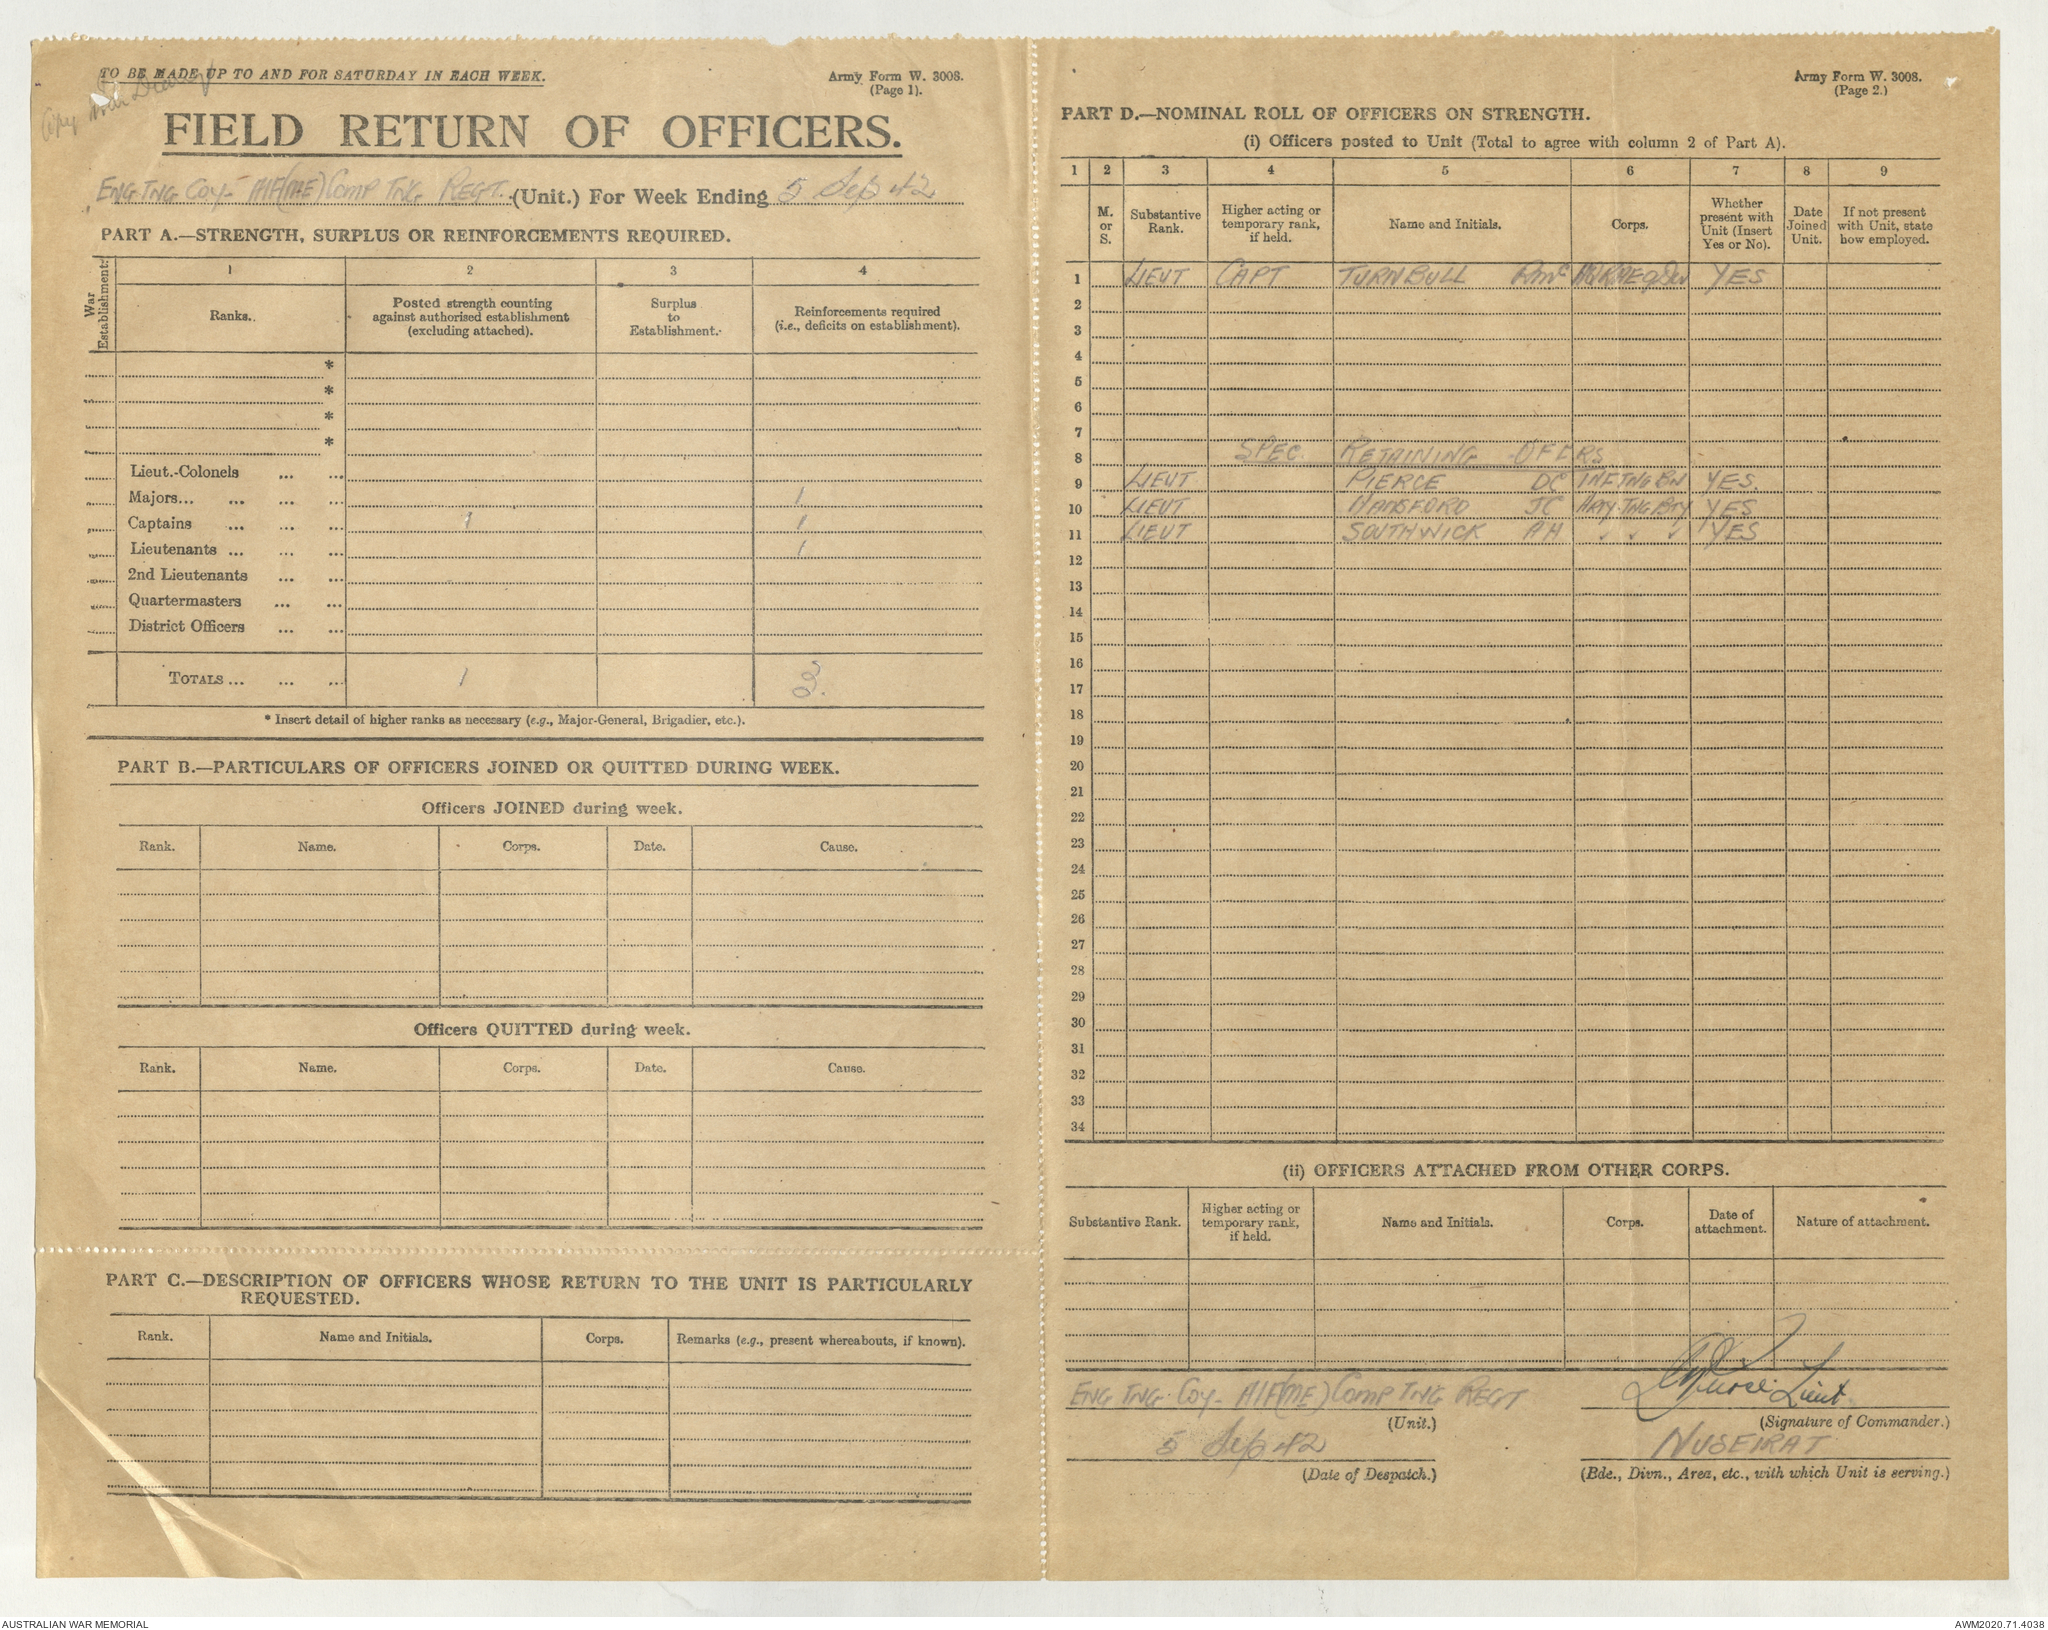 TO BE MADE UP TO AND FOR SATURDAY IN EACH WEEK.
Army Form W. 3008.
(Page 1).
Copy War Diary
FIELD RETURN OF OFFICERS.
ENG TNG COY - AIF(ME) COMP TNG REGT. (Unit.) For Week Ending 5 Sep 42
PART A.—STRENGTH, SURPLUS OR REINFORCEMENTS REQUIRED.
War Establishment.
1 2 3 4
Ranks. Posted strength counting against authorised establishment (excluding attached). Surplus to Establishment. Reinforcements required (i.e., deficits on establishment).
*
*
*
*
Lieut.-Colonels ... ...
Majors... ... ... ... 1
Captains ... ... ... 1 1
Lieutenants ... ... ... 1
2nd Lieutenants ... ...
Quartermasters ... ...
District Officers ... ...
TOTALS ... ... ... 1 3.
* Insert detail of higher ranks as necessary (e.g., Major-General, Brigadier, etc.).
PART B.—PARTICULARS OF OFFICERS JOINED OR QUITTED DURING WEEK.
Officers JOINED during week.
Rank. Name. Corps. Date. Cause.
Officers QUITTED during week.
Rank. Name. Corps. Date. Cause.
PART C.—DESCRIPTION OF OFFICERS WHOSE RETURN TO THE UNIT IS PARTICULARLY
REQUESTED.
Rank. Name and Initials. Corps. Remarks (e.g., present whereabouts, if known).
Army Form W. 3008.
(Page 2.)
PART D.—NOMINAL ROLL OF OFFICERS ON STRENGTH.
(i) Officers posted to Unit (Total to agree with column 2 of Part A).
1 2 3 4 5 6 7 8 9
M. or S. Substantive Rank. Higher acting or temporary rank, if held. Name and Initials. Corps. Whether present with Unit (Insert Yes or No). Date Joined Unit. If not present with Unit, state how employed.
1 LIEUT CAPT TURNBULL YES
2
3
4
5
6
7
8 SPEC. RETAINING OFCRS
9 LIEUT PIERCE DC INF TNG BN YES.
10 LIEUT HANSFORD JC ARTY TNG BTY YES
11 LIEUT SOUTHWICK AH " " " YES
12
13
14
15
16
17
18
19
20
21
22
23
24
25
26
27
28
29
30
31
32
33
34
(ii) OFFICERS ATTACHED FROM OTHER CORPS.
Substantive Rank. Higher acting or temporary rank, if held. Name and Initials. Corps. Date of attachment. Nature of attachment.
ENG TNG COY - AIF(ME) COMP TNG REGT
(Unit.)
Lieut.
(Signature of Commander.)
5 Sep 42
(Date of Despatch.)
NUSEIRAT
(Bde., Divn., Area, etc., with which Unit is serving.)
AUSTRALIAN WAR MEMORIAL
AWM2020.71.4038